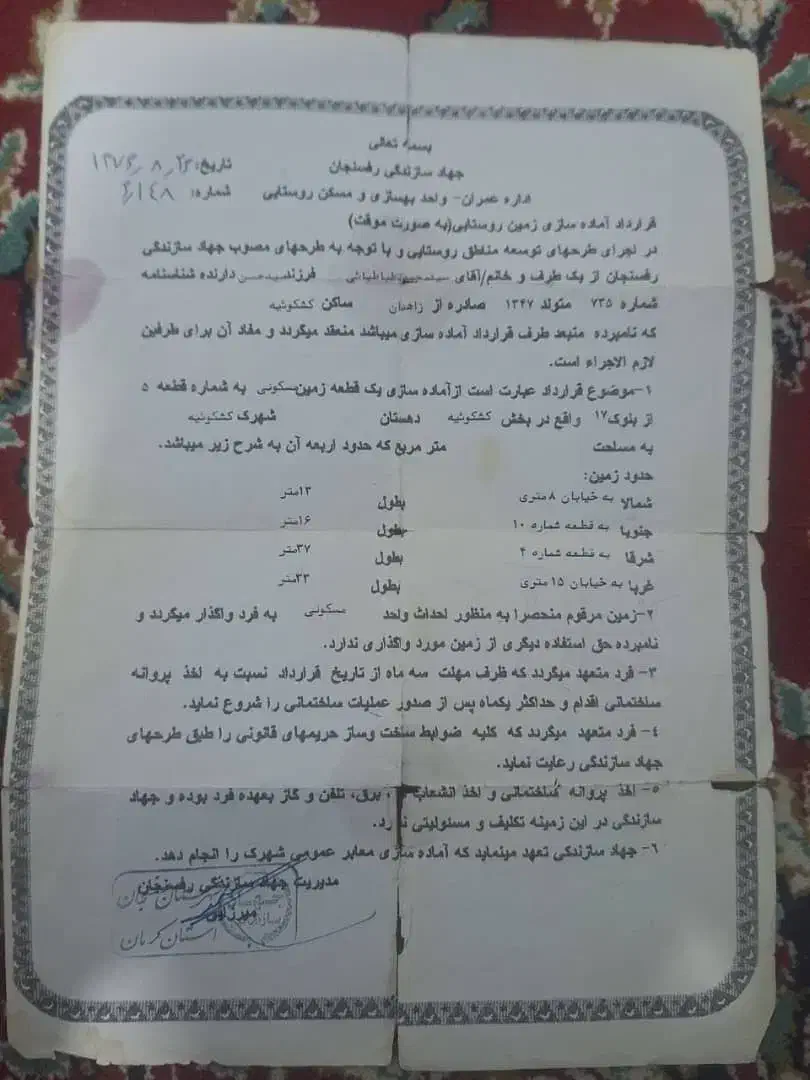 بسمه تعالی
جهاد سازندگی رفسنجان
تاریخ:
اداره عمران- واحد بهسازی و مسکن روستایی
شماره:
قرارداد آماده سازی زمین روستایی(به صورت موقت)
در اجرای طرحهای توسعه مناطق روستایی و با توجه به طرحهای مصوب جهاد سازندگی
رفسنجان از یک طرف و خانم/آقای طباطبائی فرزند سیدحسن دارنده شناسنامه
شماره ۷۳۵ متولد ۱۳۴۷ صادره از زاهدان ساکن کشکوئیه
که نامبرده متبعد طرف قرارداد آماده سازی میباشد منعقد میگردد و مفاد آن برای طرفین
لازم الاجراء است.
۱-موضوع قرارداد عبارت است ازآماده سازی یک قطعه زمین مسکونی به شماره قطعه ۵
از بلوک ۱۷ واقع در بخش کشکوئیه دهستان شهرک کشکوئیه
به مساحت متر مربع که حدود اربعه آن به شرح زیر میباشد.
حدود زمین:
شمالا به خیابان ۸ متری بطول ۱۳متر
جنوبا به قطعه شماره ۱۰ بطول ۱۶متر
شرقا به قطعه شماره ۴ بطول ۳۷متر
غربا به خیابان ۱۵ متری بطول ۳۳متر
۲-زمین مرقوم منحصرا به منظور احداث واحد مسکونی به فرد واگذار میگردد و
نامبرده حق استفاده دیگری از زمین مورد واگذاری ندارد.
۳- فرد متعهد میگردد که ظرف مهلت سه ماه از تاریخ قرارداد نسبت به اخذ پروانه
ساختمانی اقدام و حداکثر یکماه پس از صدور عملیات ساختمانی را شروع نماید.
۴- فرد متعهد میگردد که کلیه ضوابط ساخت وساز حریمهای قانونی را طبق طرحهای
جهاد سازندگی رعایت نماید.
۵- اخذ پروانه ساختمانی و اخذ انشعاب برق، تلفن و گاز بعهده فرد بوده و جهاد
سازندگی در این زمینه تکلیف و مسئولیتی ندارد.
۶- جهاد سازندگی تعهد مینماید که آماده سازی معابر عمومی شهرک را انجام دهد.
مدیریت جهاد سازندگی رفسنجان
استان کرمان